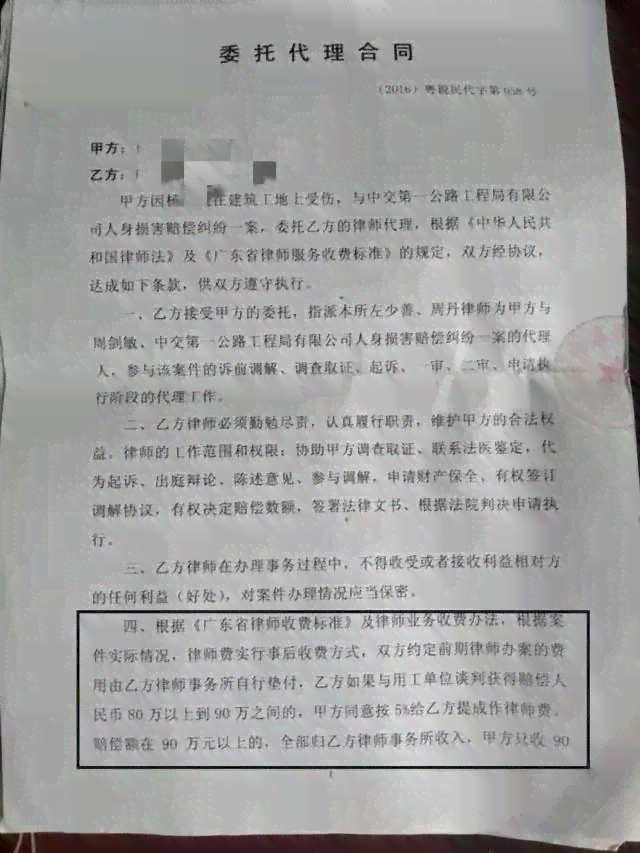 委托代理合同
（2016）粤锐民代字第058号
甲方：
乙方：
甲方因杨 在建筑工地上受伤，与中交第一公路工程局有限公
司人身损害赔偿纠纷一案，委托乙方的律师代理，根据《中华人民共
和国律师法》及《广东省律师服务收费标准》的规定，双方经协议，
达成如下条款，供双方遵守执行。
一、乙方接受甲方的委托，指派本所左少善、周丹律师为甲方与
周剑敏、中交第一公路工程局有限公司人身损害赔偿纠纷一案的代理
人，参与该案件的诉前调解、调查取证、起诉、一审、二审、申请执
行阶段的代理工作。
二、乙方律师必须勤勉尽责，认真履行职责，维护甲方的合法权
益。律师的工作范围和权限：协助甲方调查取证、联系法医鉴定，代
为起诉、出庭辩论，陈述意见、参与调解，申请财产保全、有权签订
调解协议，有权决定赔偿数额，签署法律文书、根据法院判决申请执
行。
三、乙方律师在办理事务过程中，不得收受或者接收利益相对方
的任何利益（好处），对案件办理情况应当保密。
四、根据《广东省律师收费标准》及律师业务收费办法，根据案
件实际情况，律师费实行事后收费方式，双方约定前期律师办案的费
用由乙方律师事务所自行垫付，乙方如果与用工单位谈判获得赔偿人
民币80万以上到90万之间的，甲方同意按5%给乙方提成作律师费。
赔偿额在90万元以上的，全部归乙方律师事务所收入，甲方只收90
1